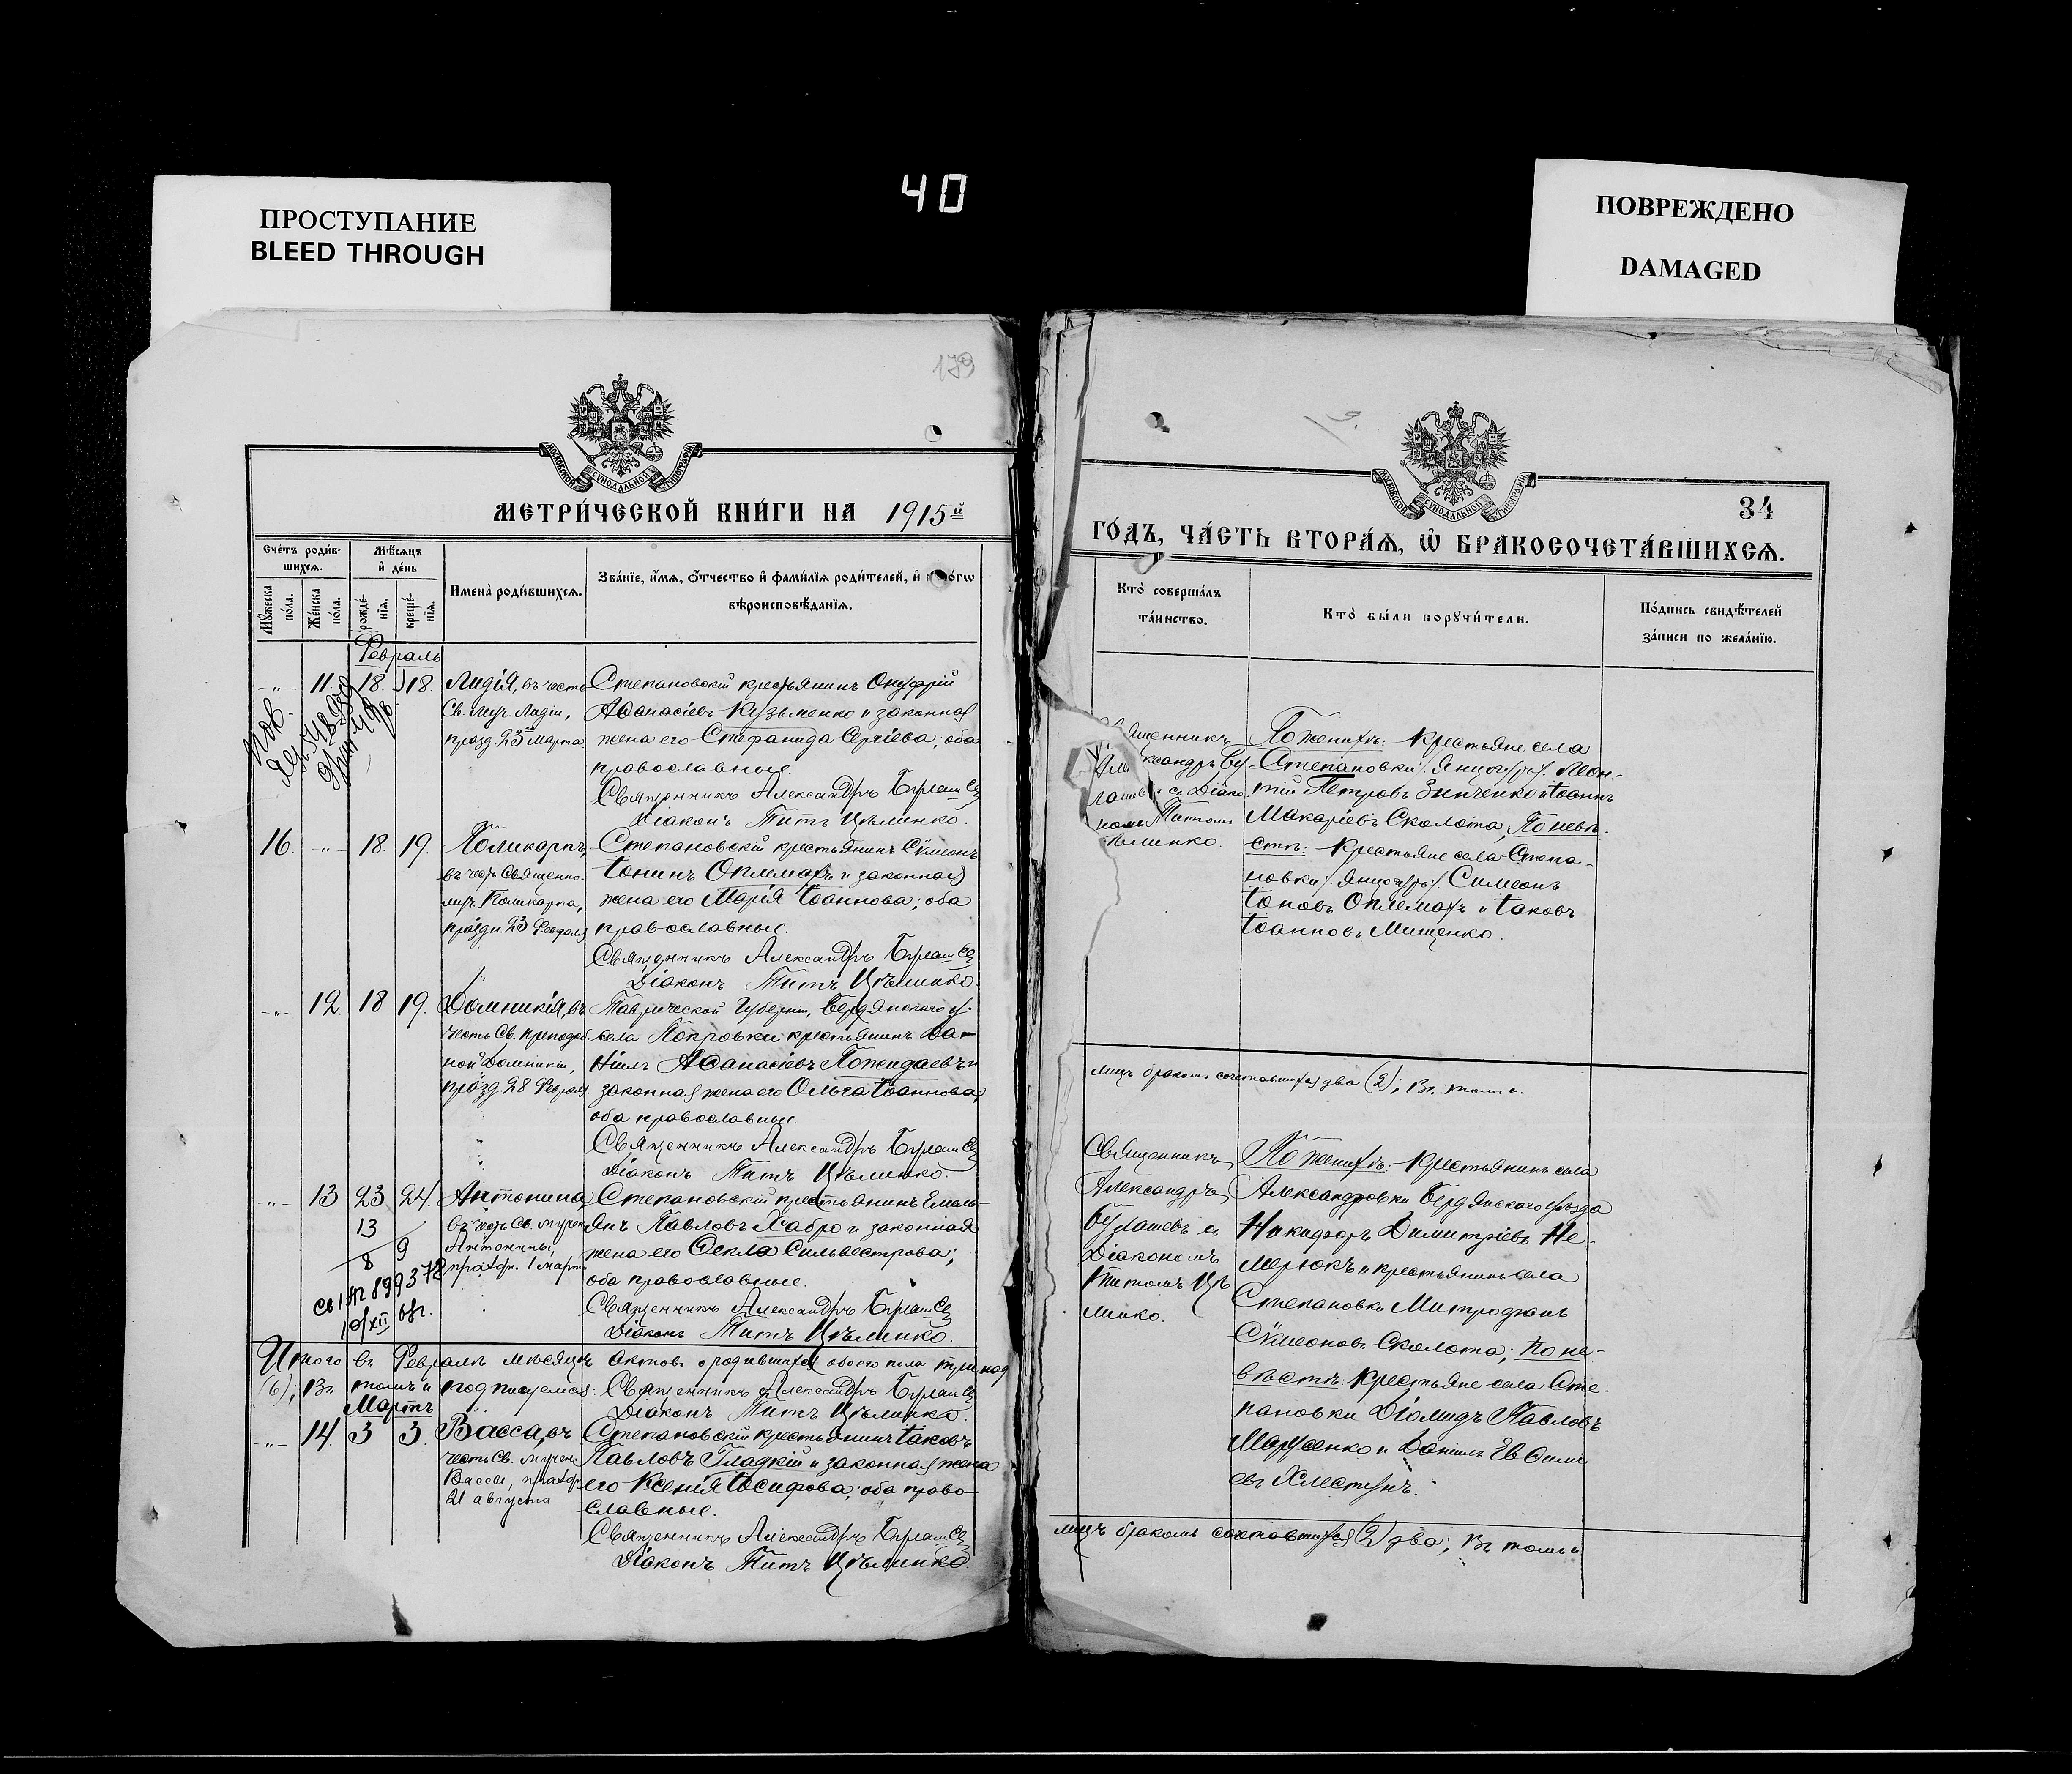 40
ПРОСТУПАНИЕ
BLEED THROUGH
ПОВРЕЖДЕНО
DAMAGED
179
МОСКОВСКОЙ СѴНОДАЛЬНОЙ ТИПОГРАФІИ
МЕТРИ́ЧЕСКОЙ КНИ́ГИ НА 1915й
Сче́тъ роди́в-
шихсѧ.
Мѣ́сѧцъ
и҆ де́нь
Мꙋ́жеска
по́ла.
Же́нска
по́ла.
рожде́-
нїѧ.
креще́-
нїѧ.
Имена̀ роди́вшихсѧ.
Зва́нїе, и҆́мѧ, ѻ҆́тчество и҆ фами́лїѧ роди́телей, и҆
вѣроисповѣ́данїѧ.
Февраль
-"- 11. 18. 18. Лидія, въ честь
Св. Муч. Лидіи,
празд. 23 Марта
Степановскій крестьянинъ Онуфрій
Аѳанасіевъ Кузьменко и законная
жена его Стефанида Сергіева; оба
православные.
Священникъ Александръ
Діаконъ Титъ Цѣлинко.
16. -"- 18. 19. Поликарпъ,
въ честь Священно-
муч. Поликарпа,
праздн. 23 Февраля
Степановскій крестьянинъ Сѵмеонъ
Іонинъ Оплемахъ и законная
жена его Марія Іоаннова; оба
православные.
Священникъ Александръ
Діаконъ Титъ Цѣлинко.
-"- 12. 18 19. Домникія, въ
честь Св. преподоб
ной Домникіи,
празд. 28 Февраля.
Таврической Губерніи, Бердянскаго у.
села Покровки крестьянинъ Да-
ніилъ Аѳанасіевъ Пожидаевъ и
законная жена его Ольга Іоаннова;
оба православные.
Священникъ Александръ
Діаконъ Титъ Цѣлинко.
-"- 13 23 24. Антонина,
въ честь Св. мучен
Антонины,
праздн. 1 марта
13
8 9
Степановскій крестьянинъ Емель-
янъ Павловъ Хабро и законная
жена его Ѳекла Сильвестрова;
оба православные.
Священникъ Александръ
Діаконъ Титъ Цѣлинко.
Итого въ Февралѣ мѣсяцѣ актовъ о родившихся обоего пола
(6); Въ томъ и подписуемся: Священникъ Александръ
Діаконъ Титъ Цѣлинко.
Мартъ
-"- 14. 3 3. Васса, въ
честь Св. мучен.
Вассы, праздн.
21 августа
Степановскій крестьянинъ Іаковъ
Павловъ Гладкій и законная жена
его Ксенія Іосифова; оба право-
славные.
Священникъ Александръ
Діаконъ Титъ Цѣлинко.
МОСКОВСКОЙ СѴНОДАЛЬНОЙ ТИПОГРАФІИ
34
ГО́ДЪ, ЧА́СТЬ ВТОРА́Ѧ, Ѡ҆ БРАКОСОЧЕТА́ВШИХСѦ.
Кто̀ соверша́лъ
та́инство.
Кто̀ бы́ли порꙋчи́тели.
По́дпись свидѣ́телей
за́писи по жела́нїю.
Титомъ
По женихѣ: Крестьяне села
Степановки /Янцогура/. Леон-
тій Петровъ Зинченко и Іоаннъ
Макаріевъ Сколота, По невѣ-
стѣ: Крестьяне села Степа-
новки /Янцогура/. Симеонъ
Іоновъ Оплемахъ и Іаковъ
Іоанновъ Мищенко.
лицъ бракомъ сочетавшихся два (2); Въ томъ и
Священникъ
Александръ
Булашевъ съ
Діакономъ
Титомъ Цѣ
линко.
По женихѣ: Крестьянинъ села
Александровки Бердянскаго уѣзда
Никифоръ Димитріевъ Не-
мерюкъ и крестьянинъ села
Степановки Митрофанъ
Сѵмеоновъ Сколота; По не-
вѣстѣ: Крестьяне села Сте-
пановки Діомидъ Павловъ
Марусенко и Даніилъ Евѳимі
евъ Хлестунъ.
лицъ бракомъ сочетавшихся (2) два; Въ томъ и